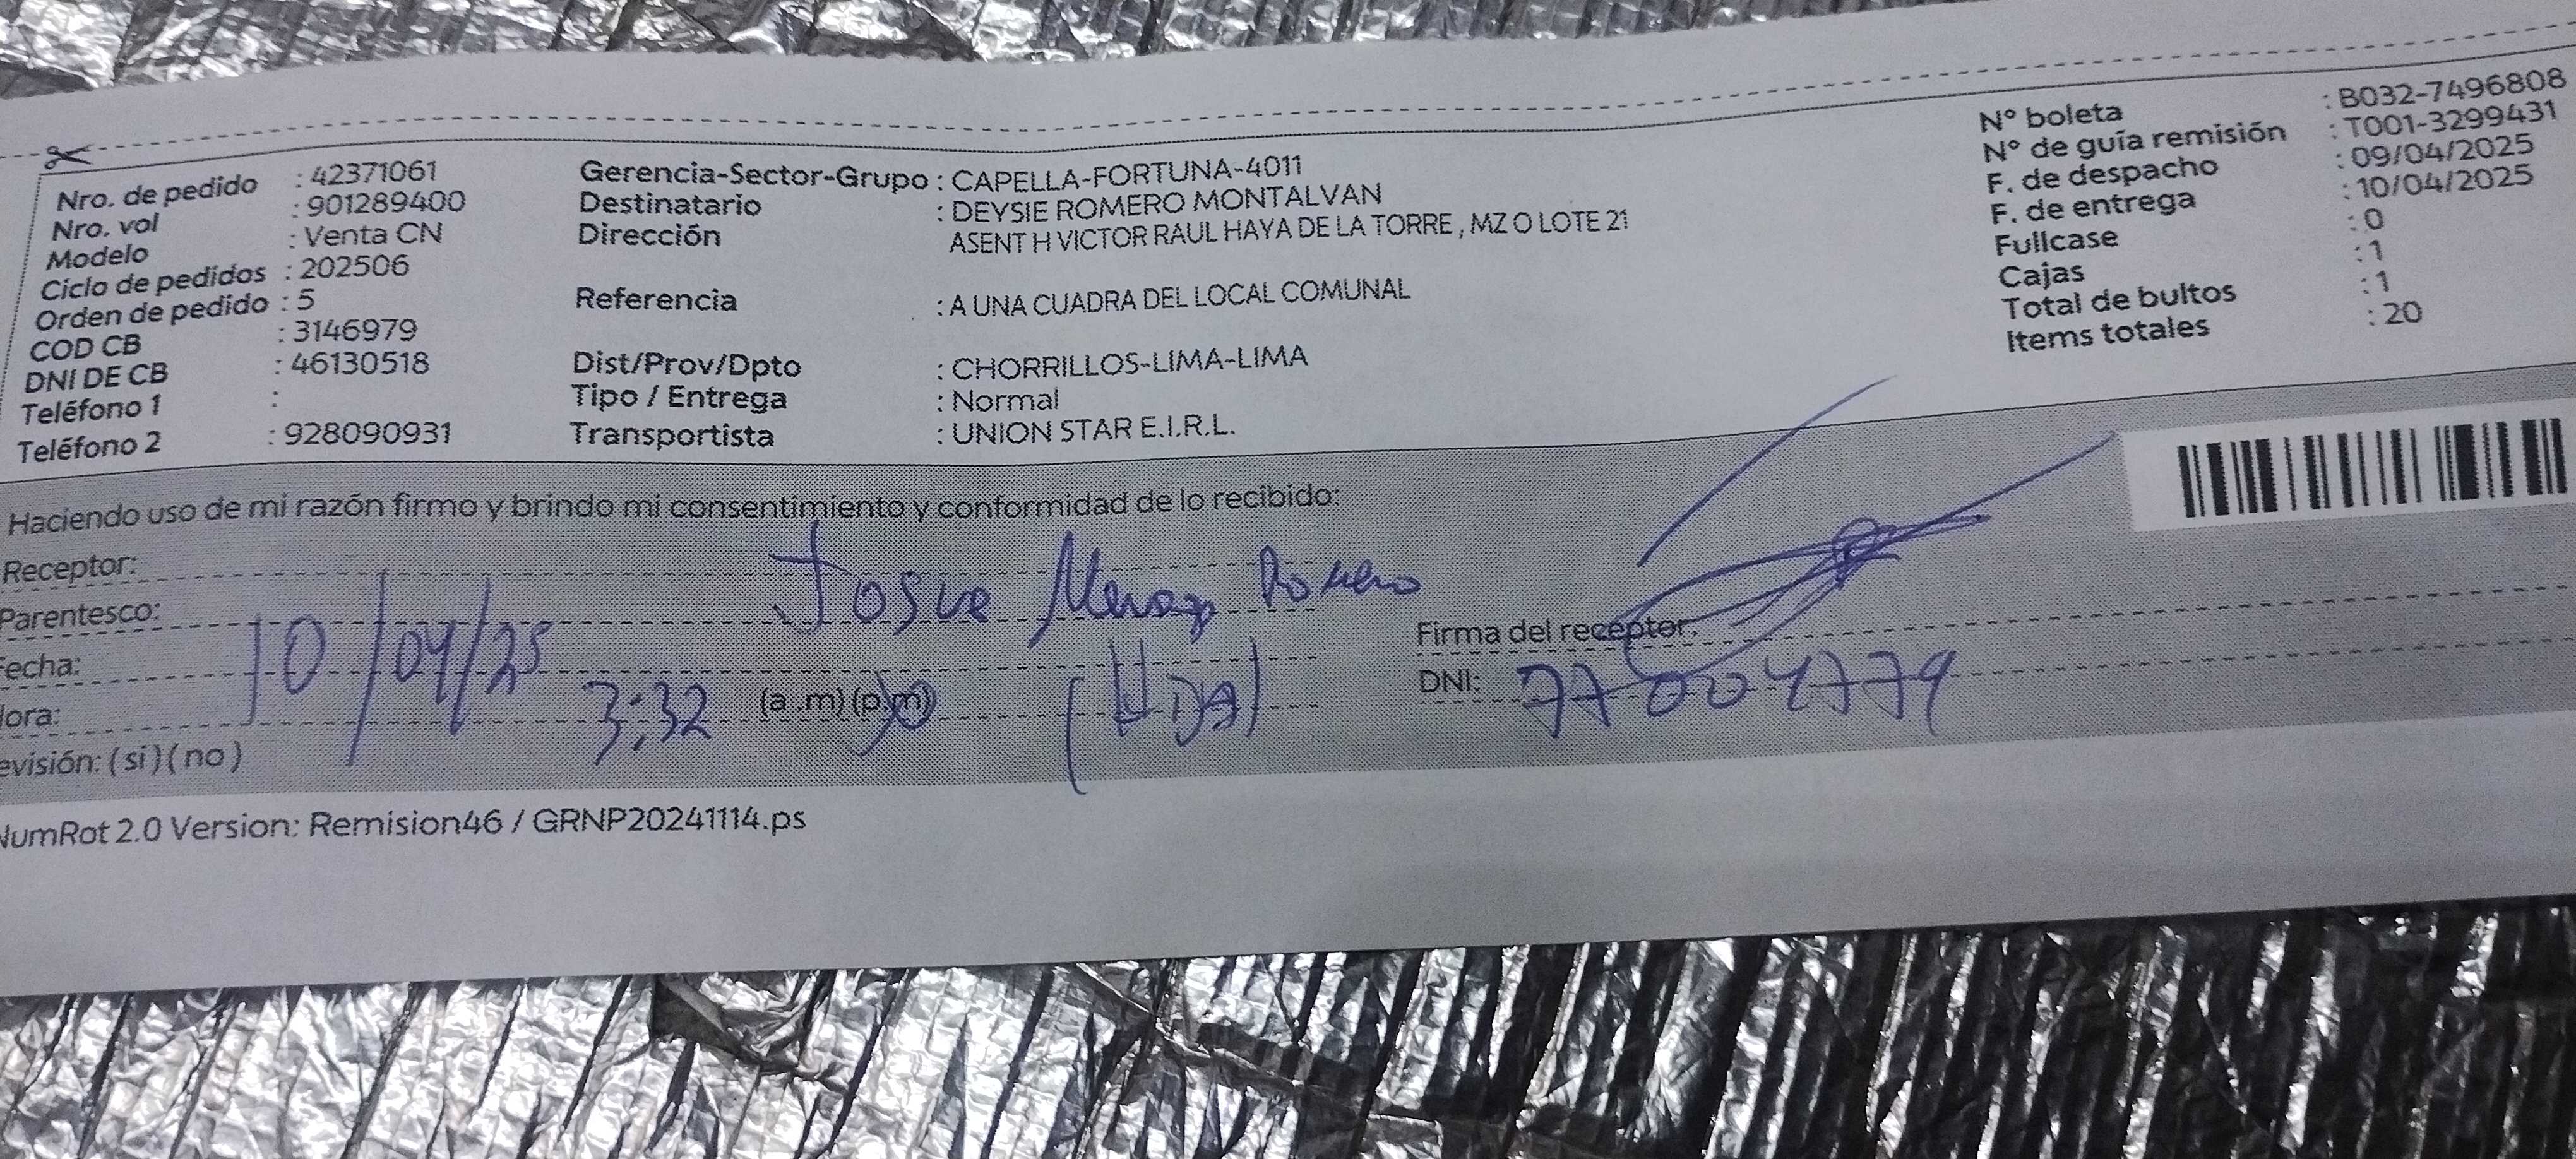 Nro. de pedido : 42371061
Nro. vol : 901289400
Modelo : Venta CN
Ciclo de pedidos : 202506
Orden de pedido : 5
COD CB : 3146979
DNI DE CB : 46130518
Teléfono 1 :
Teléfono 2 : 928090931
Gerencia-Sector-Grupo : CAPELLA-FORTUNA-4011
Destinatario : DEYSIE ROMERO MONTALVAN
Dirección ASENT H VICTOR RAUL HAYA DE LA TORRE , MZ O LOTE 21
Referencia : A UNA CUADRA DEL LOCAL COMUNAL
Dist/Prov/Dpto : CHORRILLOS-LIMA-LIMA
Tipo / Entrega : Normal
Transportista : UNION STAR E.I.R.L.
N° boleta : B032-7496808
N° de guía remisión : T001-3299431
F. de despacho : 09/04/2025
F. de entrega : 10/04/2025
Fullcase : 0
Cajas : 1
Total de bultos : 1
Items totales : 20
Haciendo uso de mi razón firmo y brindo mi consentimiento y conformidad de lo recibido:
Receptor: Josue Romero
Parentesco:
Fecha: 10/04/25
Hora: 3:32 (a .m) (p.m)
evisión: ( si ) ( no )
Firma del receptor:
DNI: 77004779
NumRot 2.0 Version: Remision46 / GRNP20241114.ps